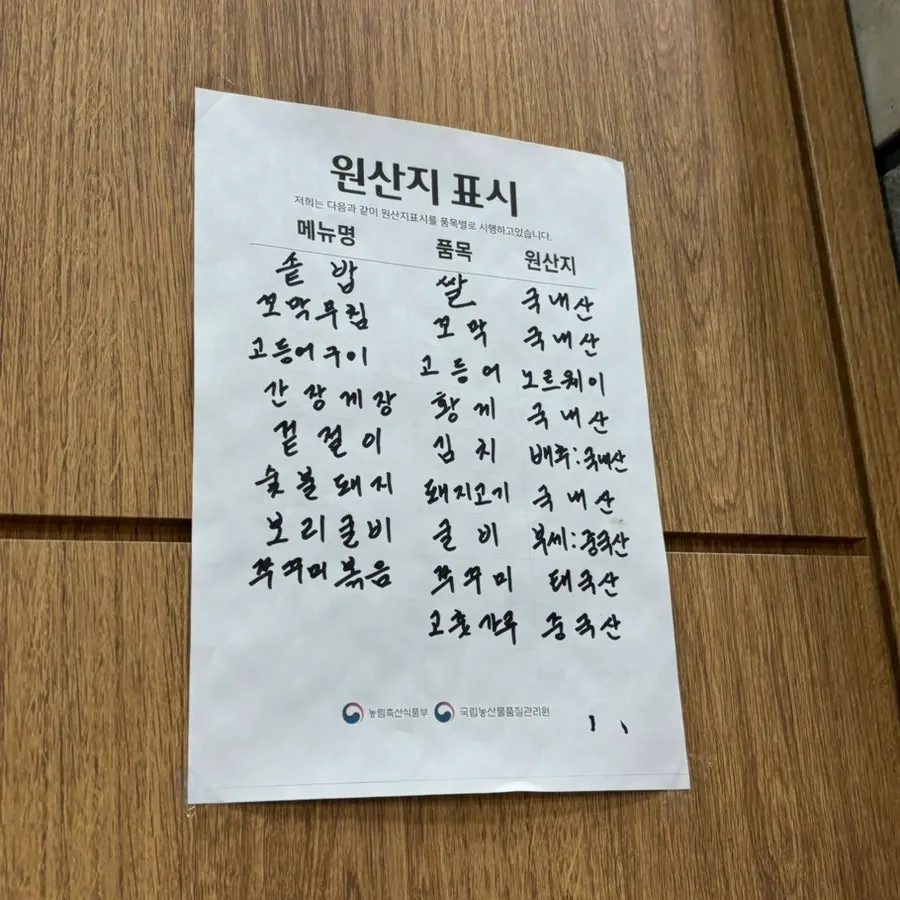 원산지 표시
저희는 다음과 같이 원산지표시를 품목별로 시행하고있습니다.
메뉴명 품목 원산지
솥밥 쌀 국내산
꼬막무침 꼬막 국내산
고등어구이 고등어 노르웨이
간장게장 황게 국내산
겉절이 김치 배추:국내산
숯불돼지 돼지고기 국내산
보리굴비 굴비 부세:중국산
쭈꾸미볶음 쭈꾸미 태국산
고춧가루 중국산
농림축산식품부 국립농산물품질관리원